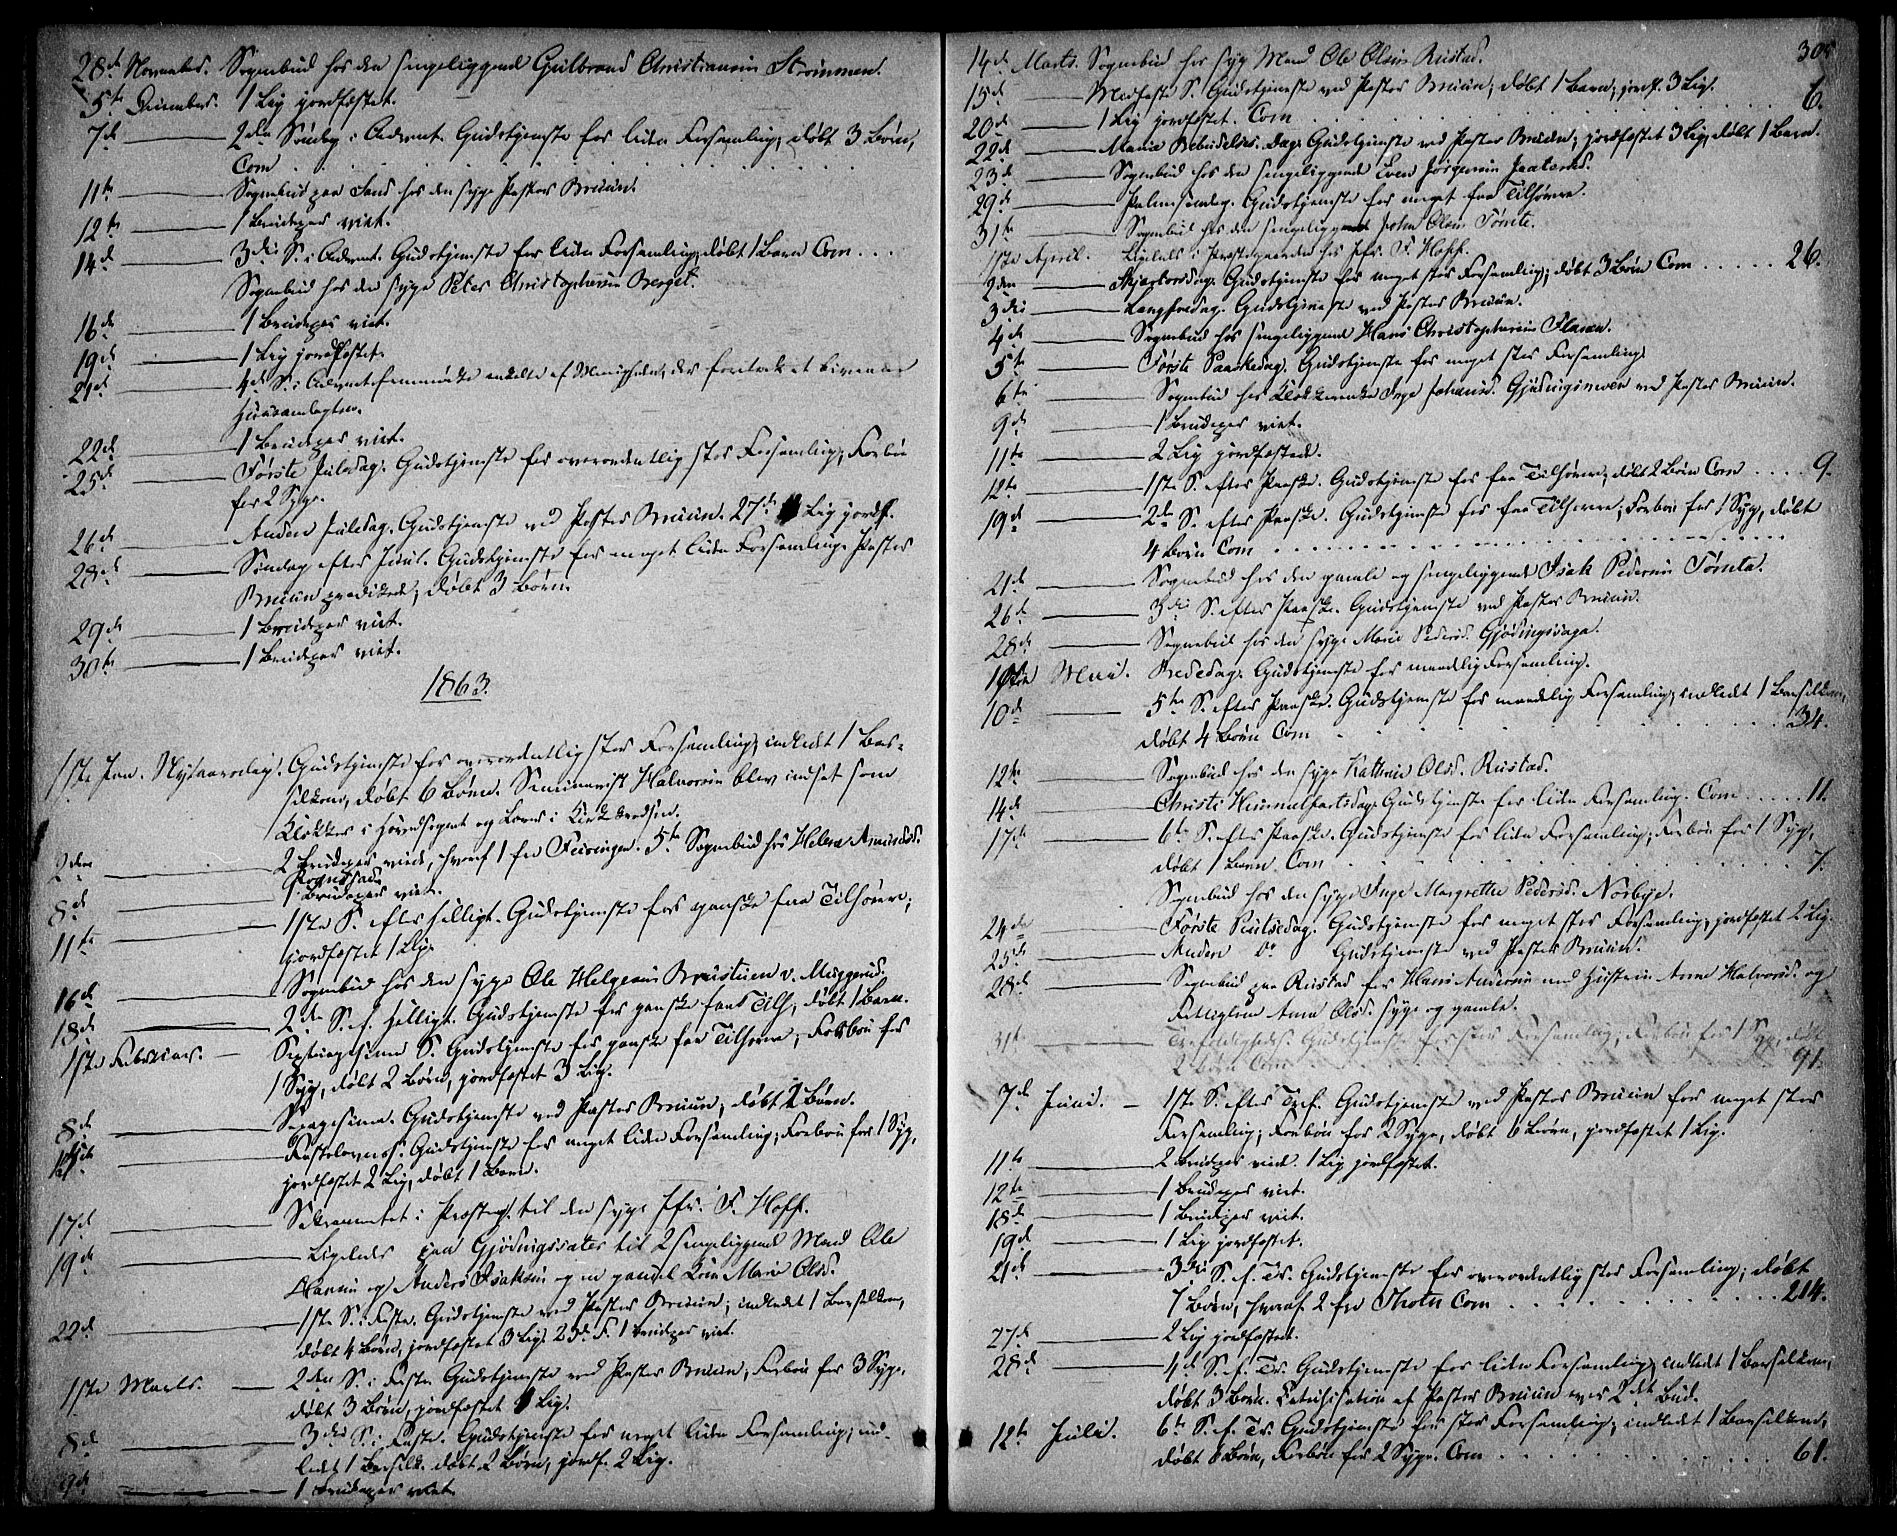 28de November. Sognebud hos den sengeliggende Gulbrand Christiansen Strømmen.
5te December. 1 Lig jordfæstet.
7de 2den Søndag i Advent. Gudstjeneste for liden Forsamling; døbt 3 Børn,
Com
11te Sognebud paa Sand hos den syge Pastor Bruun.
12te 1 Brudepar viet.
14de 3die S. i Advent. Gudstjeneste for liden Forsamling; døbt 1 Barn Com
Sognebud hos den syge Peter Christophersen Berget.
16de 1 Brudepar viet.
19de 1 Lig jordfæstet.
21de 4de S. i Advent fremmødte enkelte af Menigheden, der foretoges
22de 1 Brudepar viet.
25de Første Juledag. Gudstjeneste for overordentlig stor Forsamling; Forbøn
for 2 Syge.
26de Anden Juledag. Gudstjeneste ved Pastor Bruun. 27de 1 Lig jordf.
28de Søndag efter Juul. Gudstjeneste for meget liden Forsamling. Pastor
Bruun prædikede; døbt 3 Børn.
29de 1 Brudepar viet.
30te 1 Brudepar viet.
1863.
1ste Jan. Nytaarsdag. Gudstjeneste for overordentlig stor Forsamling; indledt 1 Bar-
selkone, døbt 6 Børn. Seminarist Halvorsen blev indsat som
Klokker i Hovedsognet og Lærer i
2den 2 Brudepar viede, hvoraf 1 fra Feiringen. 5te Sognebud hos Helene Amundsd.
Rognstad.
8de 1 Brudepar viet.
11te 1ste S. efter Helligt. Gudstjeneste for ganske faa Tilhørere;
jordfæstet 1 Lig.
16de Sognebud hos den syge Ole Helgesen Brustuen v. Muggerud.
18de 2den S. e. Helligt. Gudstjeneste for ganske faa Tilh., døbt 1 Barn.
1ste Februar. Septuagesima S. Gudstjeneste for ganske faa Tilhørere; Forbøn for
1 Syg, døbt 2 Børn, jordfæstet 3 Lig.
8de Sexagesima. Gudstjeneste ved Pastor Bruun; døbt 2 Børn.
Fastelavnss. Gudstjeneste for meget liden Forsamling; Forbøn for 1 Syg,
jordfæstet 2 Lig, døbt 1 Barn.
17de Sakramentet i Præsteg. til den syge Jfr. F. Hoff.
19de Ligeledes paa Gjødingsæter til 2 sengeliggende Mænd Ole
Hansen og Anders Isaksen og en gammel Kone Marie Olsd.
22de 1ste S. i Faste. Gudstjeneste ved Pastor Bruun; indledt 1 Barselkone,
døbt 4 Børn, jordfæstet 3 Lig. 23de F. 1 Brudepar viet.
1ste Marts. 2den S. i Faste. Gudstjeneste ved Pastor Bruun; Forbøn for 3 Syge,
døbt 3 Børn, jordfæstet 1 Lig.
8de 3die S. i Faste. Gudstjeneste for meget liden Forsamling; ind-
ledt 1 Barselk. døbt 2 Børn, jordf. 2 Lig.
9de 1 Brudepar viet.
305
14de Marts. Sognebud hos syg Mand Ole Olsen Rustad.
15de Midfaste S. Gudstjeneste ved Pastor Bruun; døbt 1 Barn; jordf. 3 Lig.
20de 1 Lig jordfæstet. Com 6.
22de Mariæ Bebudelses Dag. Gudstjeneste ved Pastor Bruun; jordfæstet 3 Lig, døbt 1 Barn.
23de Sognebud hos den sengeliggende Even Jørgensen
29de Palmesøndag. Gudstjeneste for meget faa Tilhørere.
31te Sognebud hos den sengeliggende John Olsen Tømte.
1ste April. Ligeledes i Præstegaarden hos Jfr. F. Hoff.
2den Skjærtorsdag. Gudstjeneste for meget stor Forsamling; døbt 3 Børn Com 26.
3die Langfredag. Gudstjeneste ved Pastor Bruun.
4de Sognebud hos sengeliggende Hans Christophersen Flaaen.
5te Første Paaskedag. Gudstjeneste for meget stor Forsamling.
6te Sognebud hos Inge Johansd. ved Pastor Bruun.
9de 1 Brudepar viet.
11te 2 Lig jordfæstede.
12te 1ste S. efter Paaske. Gudstjeneste for faa Tilhørere, døbt 2 Børn Com 9.
19de 2den S. efter Paaske. Gudstjeneste for faa Tilhørere; Forbøn for 1 Syg, døbt
4 Børn Com
21de Sognebud hos den gamle og sengeliggende Isak Pedersen Tømte.
26de 3die S. efter Paaske. Gudstjeneste ved Pastor Bruun.
28de Sognebud hos den syge Marie Pedersd. Gjødingshaga.
1ste Mai. Bededag. Gudstjeneste for maadelig Forsamling.
10de 5te S. efter Paaske. Gudstjeneste for maadelig Forsamling; indledt 1 Barselkone,
døbt 4 Børn Com 34.
12te Sognebud hos den syge Kathrine Olsd. Rustad.
14de Christi Himmelfartsdag. Gudstjeneste for liden Forsamling. Com 11.
17de 6te S. efter Paaske. Gudstjeneste for liden Forsamling; Forbøn for 1 Syg,
døbt 1 Barn. Com 7.
Sognebud hos den syge Inge Margrethe Pedersd. Norbye.
24de Første Pintsedag. Gudstjeneste for meget stor Forsamling; jordfæstet 2 Lig.
25de Anden Do Gudstjeneste ved Pastor Bruun.
28de Sognebud paa Rustad for Hans Andersen med Hustru Anne Halvorsd. og
Fattiglem Anne Olsd. syge og gamle.
31te Trefoldigheds. Gudstjeneste for stor Forsamling; Forbøn for 1 Syg, døbt
2 Børn Com 91.
7de Juni. 1ste S. efter Tref. Gudstjeneste ved Pastor Bruun for meget stor
Forsamling; Forbøn for 2 Syge, døbt 6 Børn, jordfæstet 1 Lig.
11te 2 Brudepar viede. 1 Lig jordfæstet.
12te 1 Brudepar viet.
18de 1 Brudepar viet.
19de 1 Lig jordfæstet.
21de 3die S. e. Tr. Gudstjeneste for overordentlig stor Forsamling; døbt
7 Børn, hvoraf 2 fra Thoten Com 214.
27de 2 Lig jordfæstede.
28de 4de S. e. Tr. Gudstjeneste for liden Forsamling; indledt 1 Barselkone,
døbt 3 Børn. Catechisation af Pastor Bruun over 2det Bud.
12te Juli. 6te S. e. Tr. Gudstjeneste for stor Forsamling; indledt 1 Barselkone,
døbt 8 Børn, Forbøn for 2 Syge. Com 61.